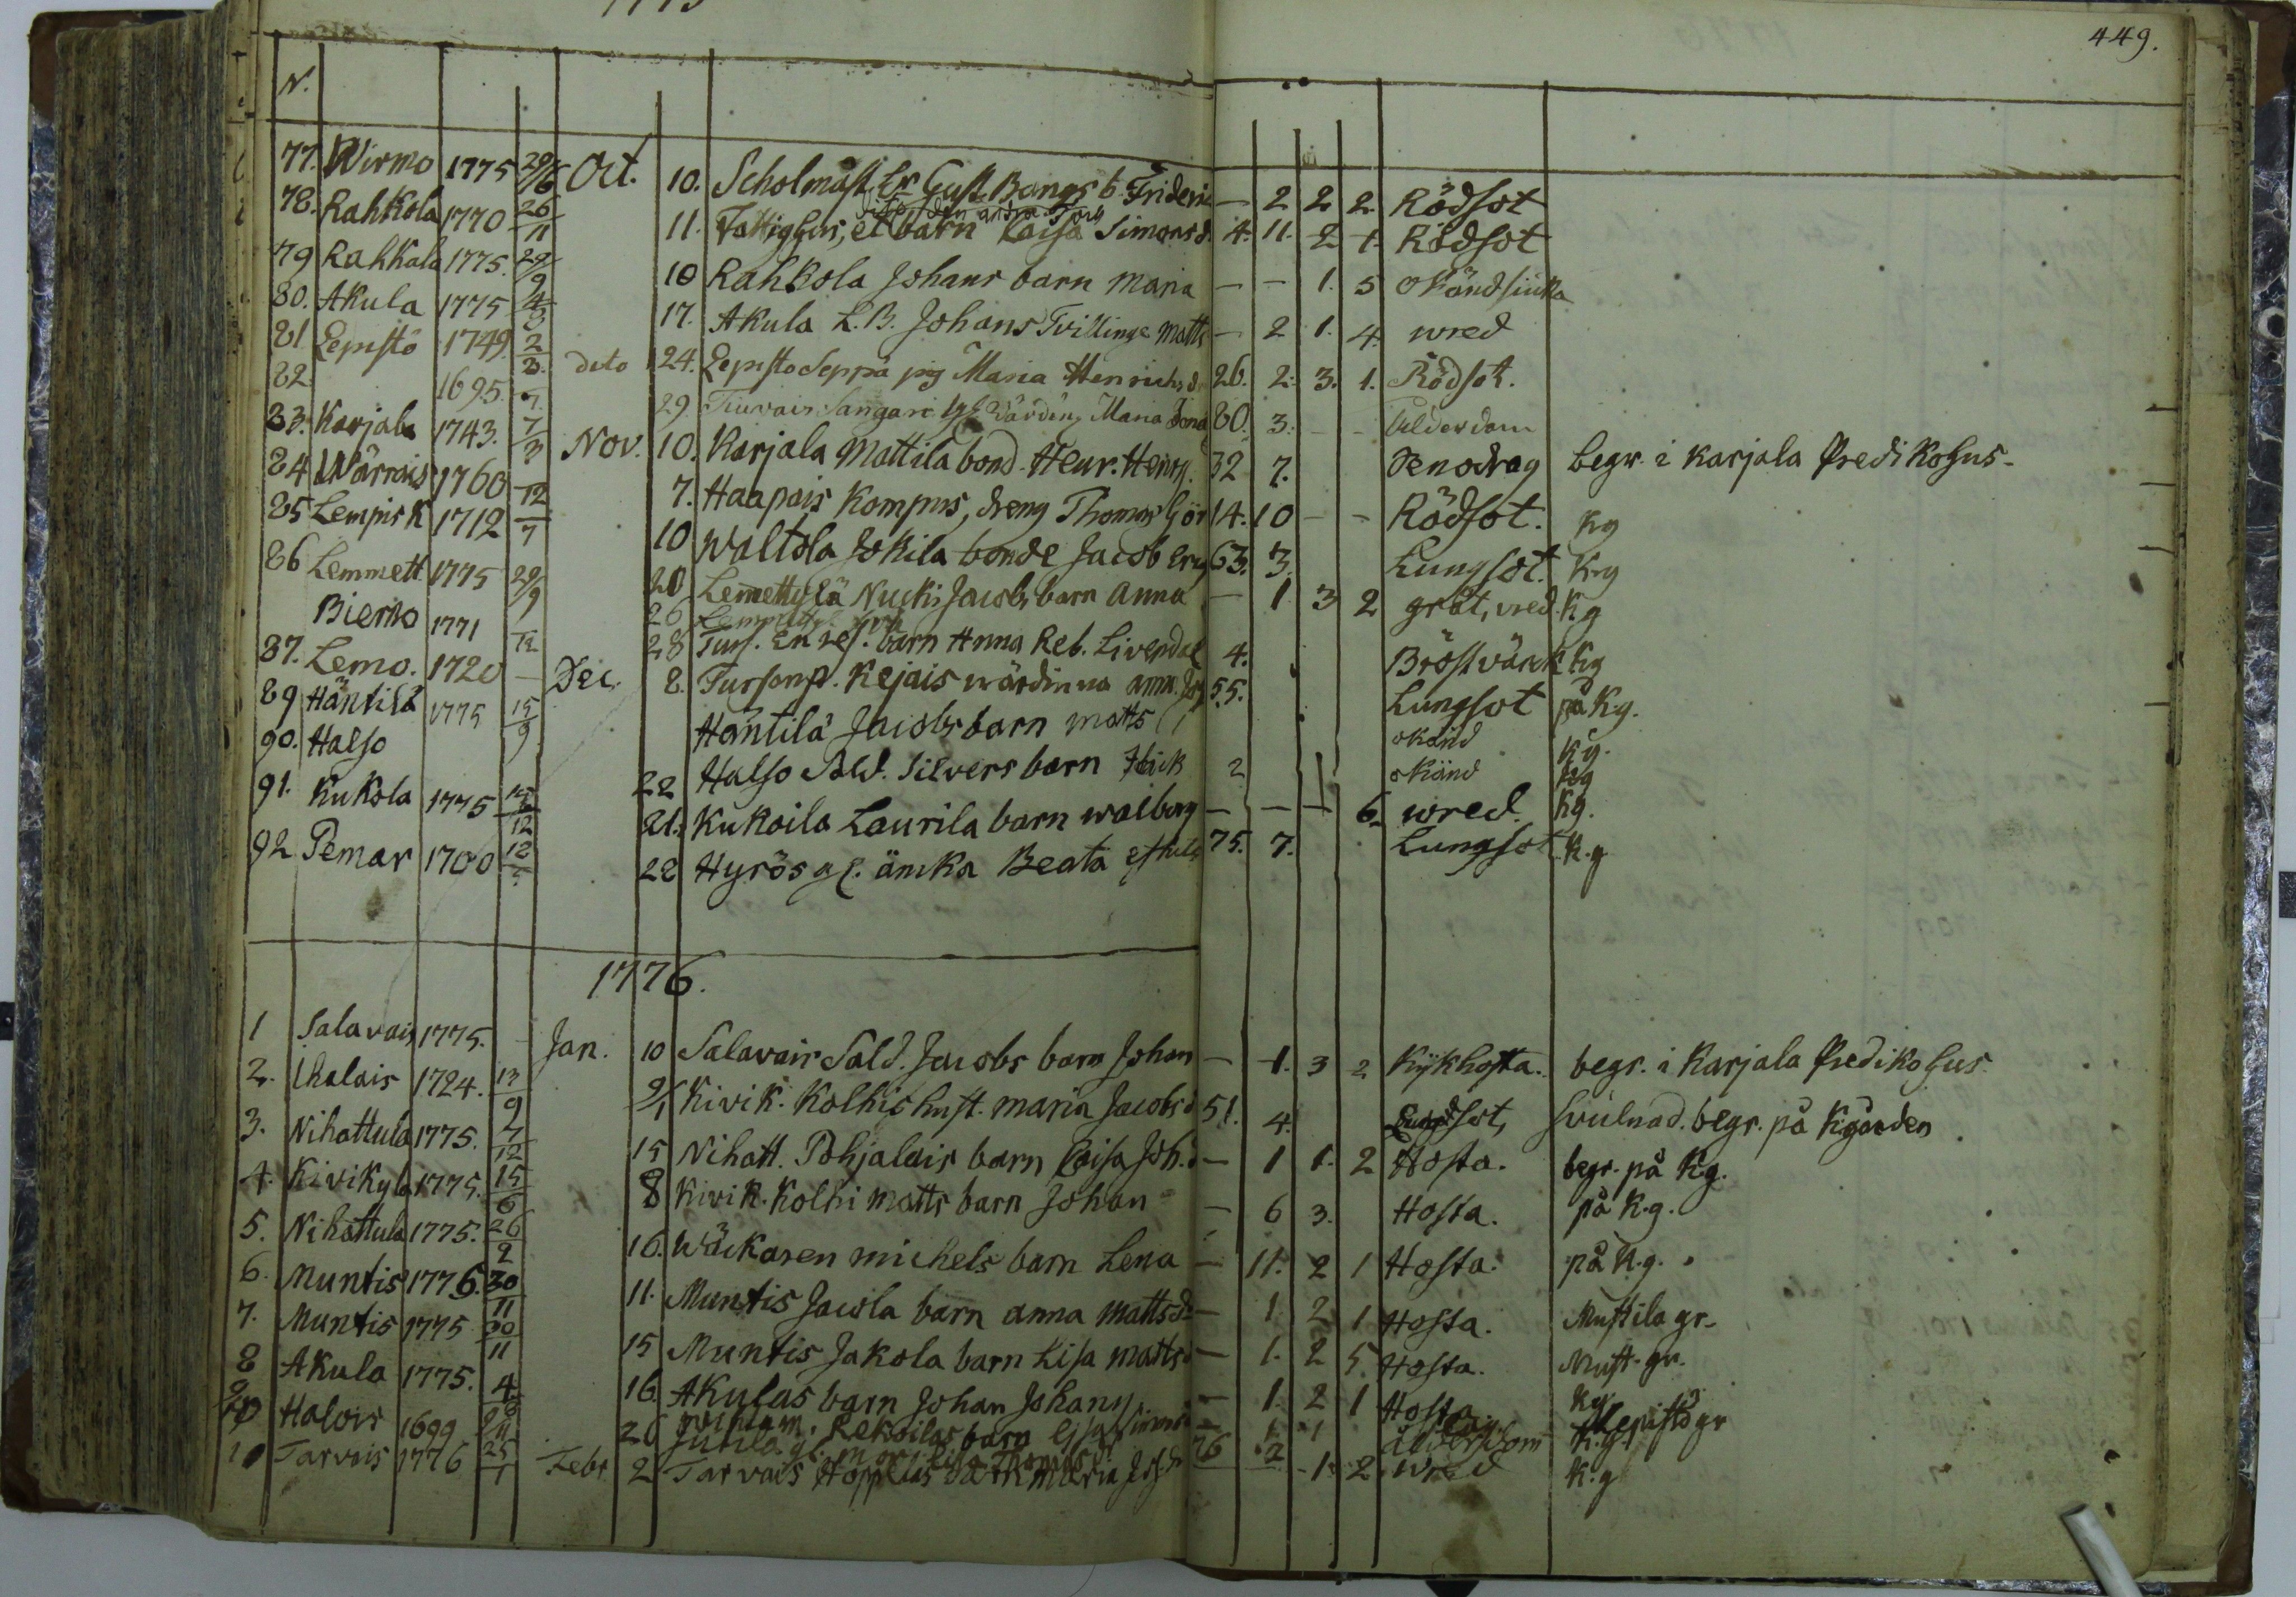 449.
N.
77. Wirmo 1775 29/16 Oct. 10. Scholmäst. Er Gust. Bangs b. Frideric — 2 2 2. Rödsot
78. Rahkola 1770 26/11 11. Fattighus, et barn Caisa Simonsd. 4. 11. 2 1. Rödsot
79 Rahkala 1775. 29/9 10 Rahkola Johans barn Maria — — 1. 5 okändsiuka
80. Akula 1775 4/3 17. Akula L. B. Johans Tvillinge Matts — 2 1. 4. wred
81 Lepistö 1749. 2/3. dito 24. Lepisto Seppä pig Maria Henrichs dr 26. 2. 3. 1. Rödsot.
82. 1695. 29. Sangari Maria 80. 3. — — Ålderdom
83. Karjala 1743. 7/3 Nov. 10. Karjala Mattila bond. Henr. Henr. 32 7. Senodrag begr. i Karjala Predikohus-
84 Wärrois 1760 12 7. Haapais Kompus, dreng Thomas Gör 14. 10 — — Rödsot. Kg
85 Lempis K 1712 7 10 Waltola Jokila bonde Jacob Eric 63. 3. Lungsot. Kg
86 Lemmett 1775 29/9 20 Lemettylä Nucki Jacobs barn Anna — 1 3 2 gråt, vred. Kg
26
Bierno 1771 12 28 Turs. En res. barn Anna Reb. Livendal 4. Bröstvärck Kg
87. Lemo. 1720 — Dec. 8. Tursonp. Kejais wärdinna Ann. 55. Lungsot på Kg.
89 Häntilä 1775 15/9 Häntilä Jacobs barn Matts okänd Kg.
90. Halso 22 Halso Sold. Silvers barn 2 okänd Kg
91. Kukola 1775 15/12 21. Kukoila Laurila barn Walborg — — — 6. wred. Kg.
92 Pemar 1700 12 22 Hyrös gl. änka Beata 75. 7. Lungsot K.g
1776.
1 Salavais 1775. — Jan. 10 Salavais Sold. Jacobs barn Johan — 1. 3 2 Kykhosta. begr. i Karjala Predikohus
2. Ihalais 1724. 13/9 9/1 Kivik. Kolhis hust. Maria Jacobsd 51. 4. Lungsot, svulnad. begr. på Kgården
3. Nihattula 1775. 7/12 15 Nihatt. Pohjalais barn Caisa Joh. d — 1 1. 2 Hosta. begr. på Kg.
4. Kivikyla 1775. 15/6 8 Kivik. Kolhi Matts barn Johan — 6 3. Hosta. på K.g.
5. Nihattula 1775. 26/2 16. Wäckaren Michels barn Lena — 11. 2 1 Hosta. på K.g.
6. Muntis 1776. 30/11 11. Muntis Jacola barn Anna Mattsd. — 1. 2 1 Hosta. Mustila gr.
7. Muntis 1775 30/11 15 Muntis Jakola barn Lisa Mattsd — 1. 2 5 Hosta. Must. gr.
8 Akula 1775. 4 16. Akulas barn Johan Johans — 1. 2 1 Hosta Kg
Rekoilas barn Lisa — 1. 1 Lepistö gr
Halois 1699 26 Juhila gl. mor Lisa Thomasdr 76 2 ålderdom K.g.
10 Tarvais 1776 25/1 Febr 2 Tarvais Hoppelas barn Maria — 1. 2 wred K.g